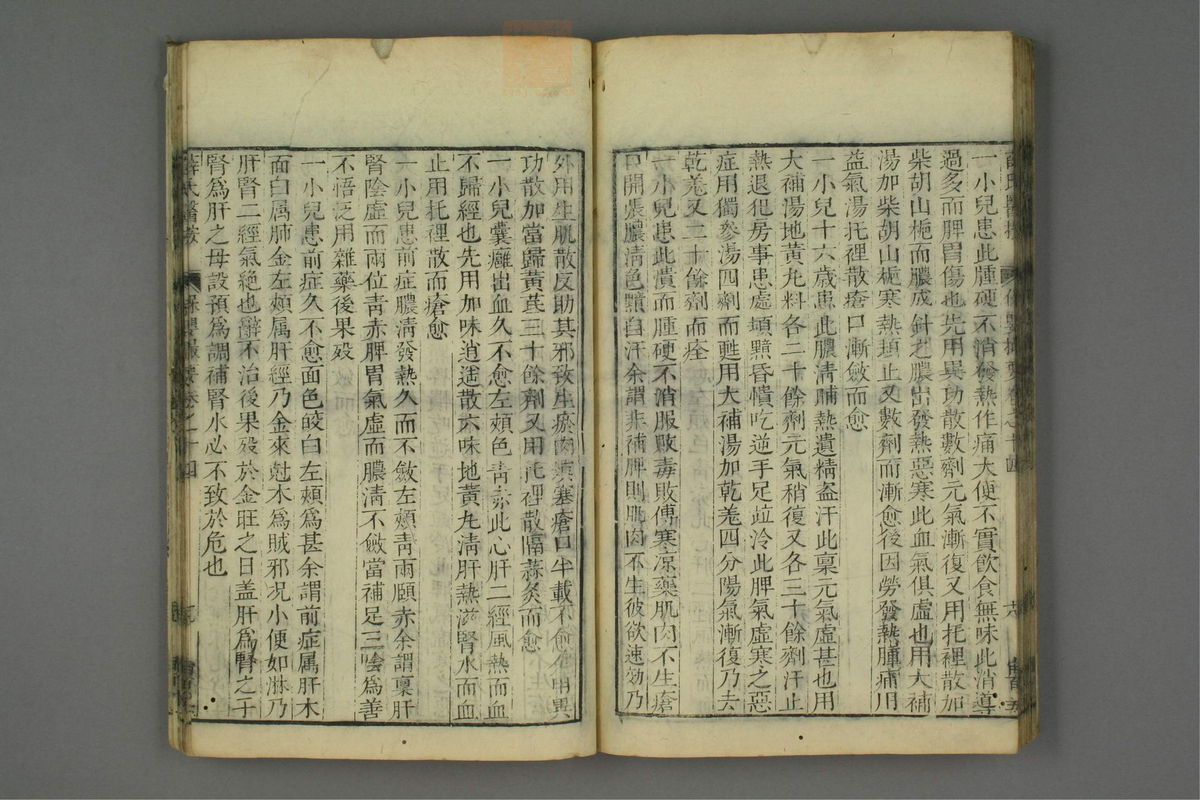 一小兒患此腫硬不消發熱作痛大便不實飲食無味此消導
過多而脾胃傷也先用異功散數劑元氣漸復又用托裡散加
柴胡山梔而膿成針之膿出發熱惡寒此血氣俱虛也用大補
湯加柴胡山梔寒熱頓止又數劑而漸愈後因勞發熱腫痛用
益氣湯托裡散瘡口漸斂而愈
一小兒十六歲患此膿清晡熱遺精盜汗此稟元氣虛甚也用
大補湯地黃丸料各二十餘劑元氣稍復又各三十餘劑汗止
熱退犯房事患處頓黯昏憒吃逆手足竝冷此脾氣虛寒之惡
症用獨參湯四劑而甦用大補湯加乾羗四分陽氣漸復乃去
乾羗又二十餘劑而痊
一小兒患此潰而腫硬不消服敗毒敗傅寒凉藥肌肉不生瘡
口開張膿清色黯自汗余謂非補脾則肌肉不生彼欲速効乃
外用生肌散反助其邪致生瘀肉填塞瘡口半載不愈用異
功散加當歸黃芪三十餘劑又用托裡散隔蒜灸而愈
一小兒囊癰出血久不愈左頰色青赤此心肝二經風熱而血
不歸經也先用加味逍遙散六味地黃丸清肝熱滋腎水而血
止用托裡散而瘡愈
一小兒患前症膿清發熱久而不斂左頰青兩頤赤余謂稟肝
腎陰虛而兩位青赤脾胃氣虛而膿清不斂當補足三陰為善
不悟泛用雜藥後果歿
一小兒患前症久不愈面色㿠白左頰為甚余謂前症属肝木
面白属肺金左頰属肝經乃金來尅木為賊邪况小便如淋乃
肝腎二經氣絶也辭不治後果歿於金旺之日盖肝爲腎之子
腎爲肝之母設預爲調補腎水必不致於危也
薛氏醫按